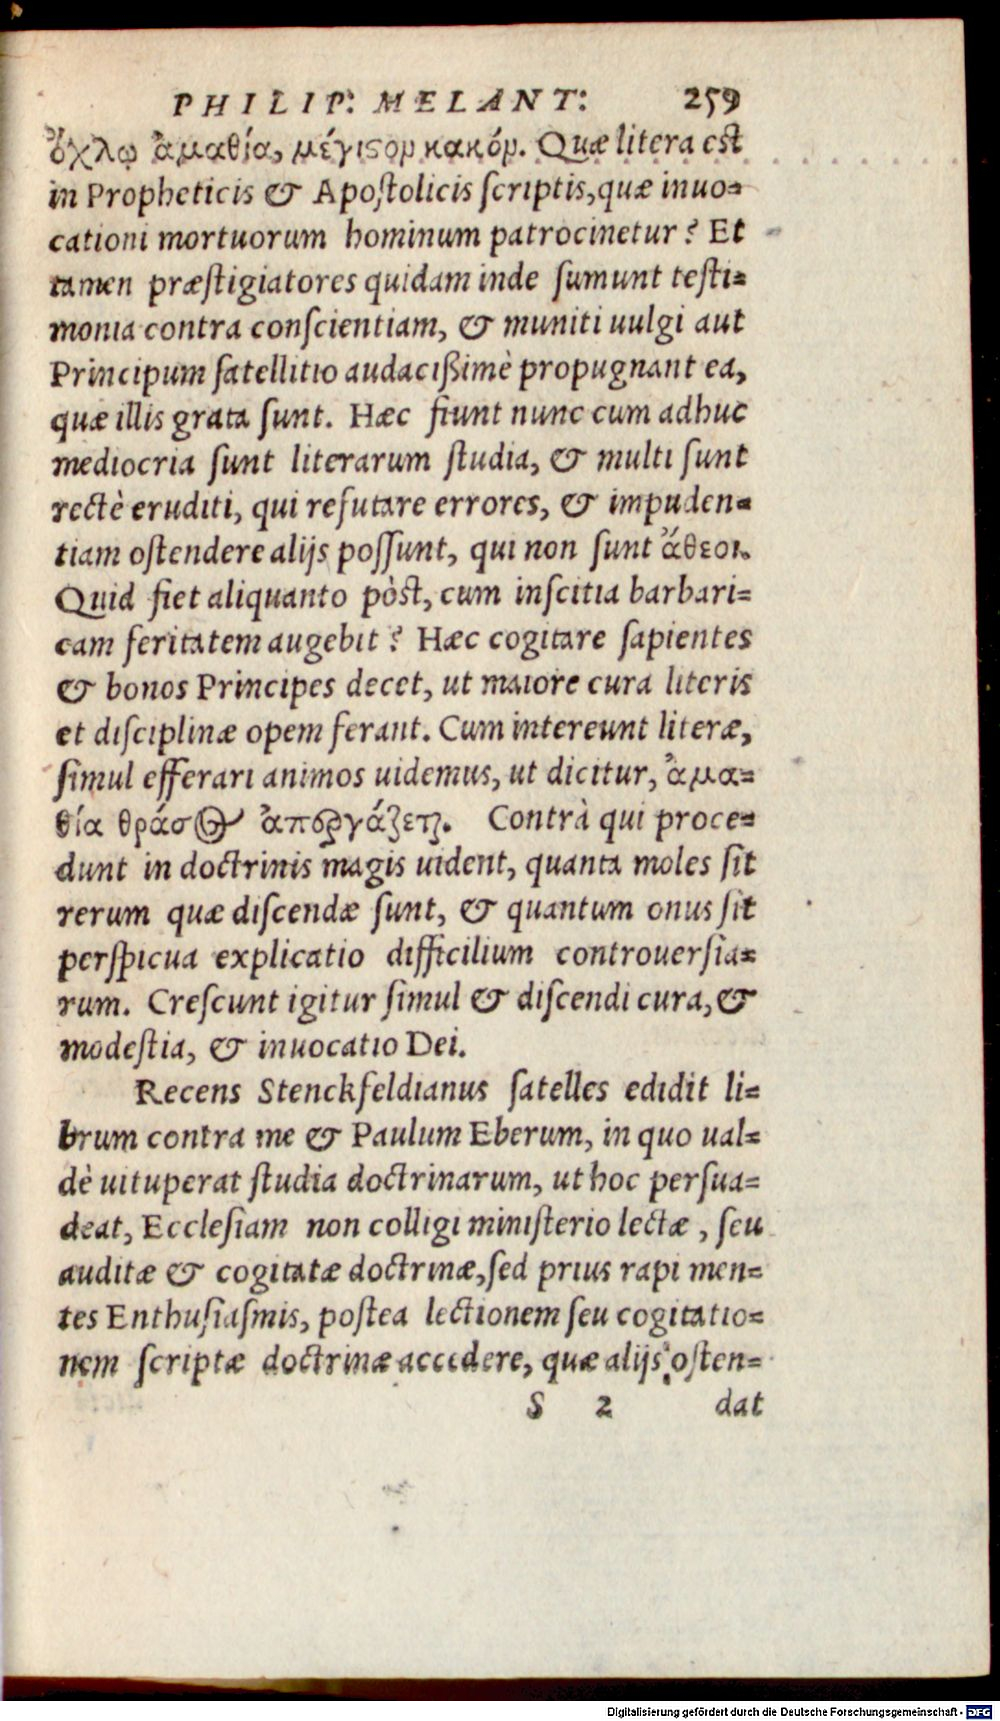 PHILIP: MELANT: 259
ὄχλῳ ἀμαθία, μέγιϛον κακόν. Quæ litera est
in Propheticis & Apoſtolicis ſcriptis, quæ inuo=
cationi mortuorum hominum patrocinetur? Et
tamen præſtigiatores quidam inde ſumunt teſti=
monia contra conſcientiam, & muniti uulgi aut
Principum ſatellitio audacißimè propugnant ea,
quæ illis grata ſunt. Hæc fiunt nunc cum adhuc
mediocria ſunt literarum ſtudia, & multi ſunt
rectè eruditi, qui refutare errores, & impuden=
tiam oſtendere alijs poſſunt, qui non ſunt ἄθεοι.
Quid fiet aliquanto pòst, cum inſcitia barbari=
cam feritatem augebit? Hæc cogitare ſapientes
& bonos Principes decet, ut maiore cura literis
et diſciplinæ opem ferant. Cum intereunt literæ,
ſimul efferari animos uidemus, ut dicitur, ἀμα=
θία θράσος ἀπεργάζεται. Contrà qui proce=
dunt in doctrinis magis uident, quanta moles ſit
rerum quæ diſcendæ ſunt, & quantum onus ſit
perſpicua explicatio difficilium controuerſia=
rum. Creſcunt igitur ſimul & diſcendi cura, &
modeſtia, & inuocatio Dei.
Recens Stenckfeldianus ſatelles edidit li=
brum contra me & Paulum Eberum, in quo ual=
dè uituperat ſtudia doctrinarum, ut hoc perſua=
deat, Eccleſiam non colligi miniſterio lectæ, ſeu
auditæ & cogitatæ doctrinæ, ſed prius rapi men=
tes Enthuſiaſmis, poſtea lectionem ſeu cogitatio=
nem ſcriptæ doctrinæ accedere, quæ alijs oſten=
S 2 dat
Digitalisierung gefördert durch die Deutsche Forschungsgemeinschaft - DFG